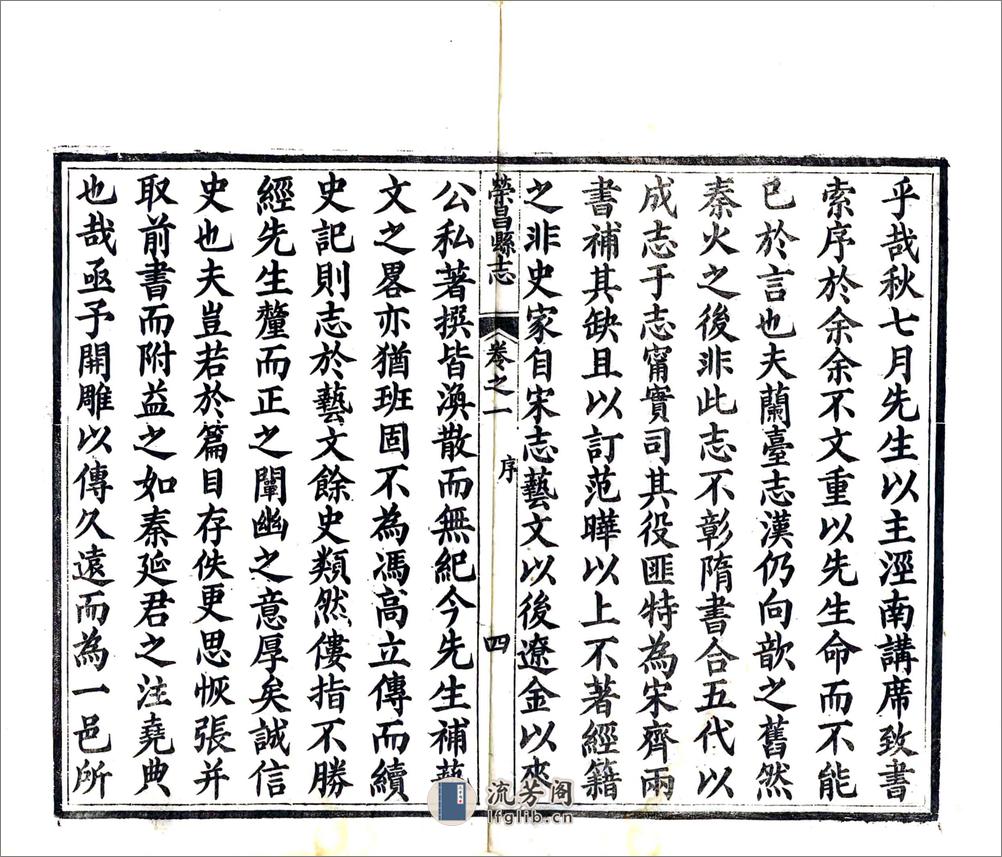 乎哉秋七月先生以主涇南講席致書
索序於余余不文重以先生命而不能
已於言也夫蘭臺志漢仍向歆之舊然
秦火之後非此志不彰隋書合五代以
成志于志甯實司其役匪特為宋齊兩
書補其缺且以訂范曄以上不著經籍
之非史家自宋志藝文以後遼金以來
榮昌縣志
卷之一
序
四
公私著撰皆渙散而無紀今先生補藝
文之畧亦猶班固不為馮商立傳而續
史記則志於藝文餘史類然僂指不勝
經先生釐而正之闡幽之意厚矣誠信
史也夫豈若於篇目存佚更思恢張并
取前書而附益之如秦延君之注堯典
也哉亟予開雕以傳久遠而為一邑所
流芳阁
lfglib.cn